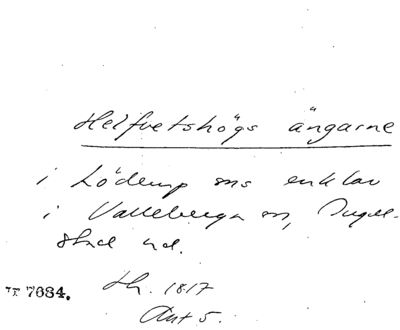 Helfvetshögs ängarne
i Löderup sns enklav
i Valleberga sn, Ingel-
stad hd.
7684. Sk. 1817
Akt 5.